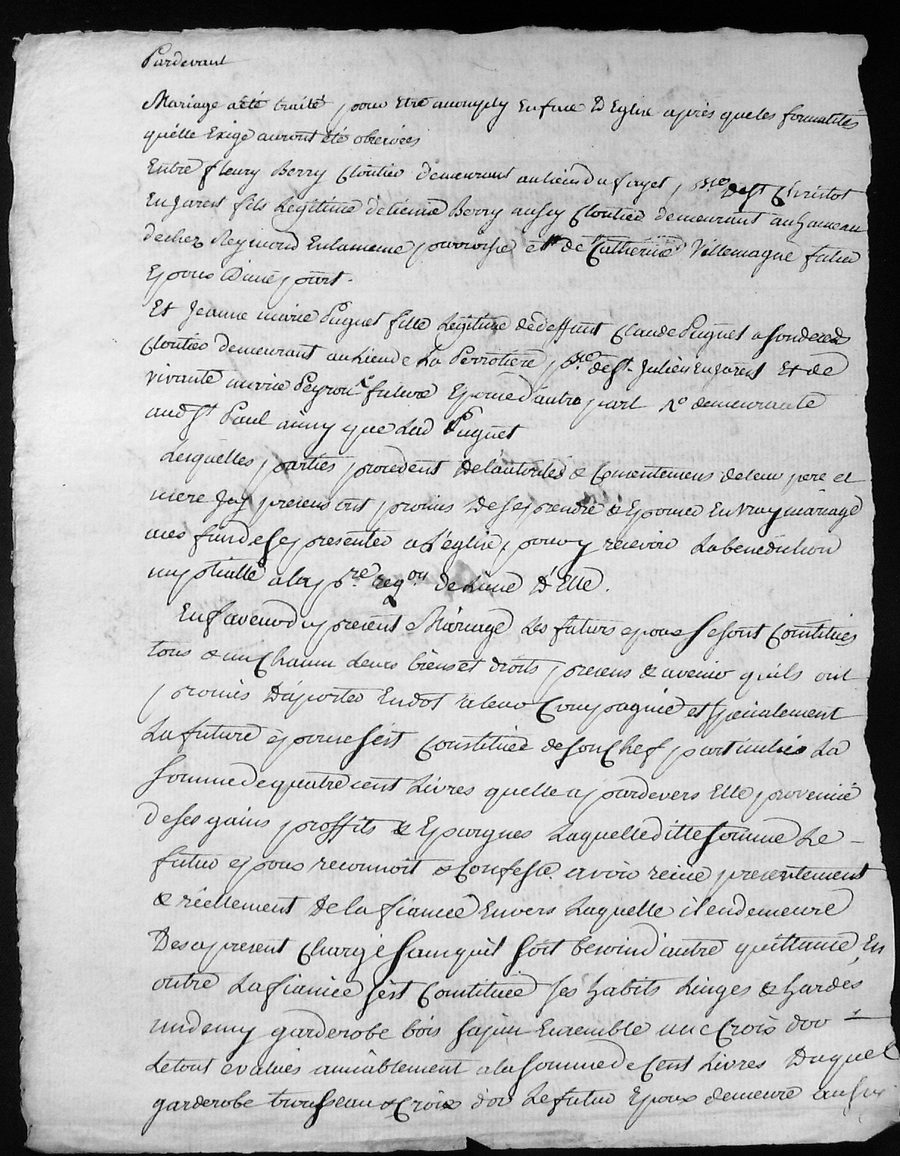 Pardevant
Mariage a été traité pour etre accomply en face D'Eglise après que les formalités
qu'elle Exige auront été observées
Entre fleury Berry Cloutier demeurant au lieu du fayet psse De St Christot
En Jarest fils Légitime d'etienne Berry aussy Cloutier demeurant au hameau
de chez Reymond En la meme parroisse et de Catherine Villemagne futur
Epoux d'une part.
Et Jeanne marie Puguet fille Légitime de deffunt Claude Puguet a son deced
Cloutier demeurant au Lieu de La Perrotiere psse de St Julien En Jarest Et de
vivante marie Peyron future Epouse d'autre part demeurante
aud St Paul ainsy que Lad Puguet
Lesquelles parties procedent De l'autorité & Consentement de leur pere et
mere Icy presens ont promis De se prendre & Epouser En vray mariage
aux fins de se presenter a L'église pour y recevoir La bénédiction
nuptialle a la pre reqon de L'une D'Elle.
En faveur du présent Mariage Les futurs epoux se sont Constitués
tous & un Chacun Leurs biens et droits presens & avenir qu'ils ont
promis D'aporter En dot a leur Compagnie et specialement
La future epouse s'est Constituée de son Chef particulier La
somme de quatre cent Livres quelle a pardevers Elle provenue
de ses gains proffits & Epargnes Laquelle ditte somme Le
futur epoux reconnoit & Confesse avoir recue presentement
& réellement De la fiancée Envers Laquelle il en demeure
Des a present Chargé sans quil soit besoin d'autre quittance, En
outre La fiancée s'est Constituée ses habits Linges & hardes
un demy garderobe bois sapin Ensemble une Croix d'or
Le tout evalués amiablement a la somme de Cent Livres Duquel
garderobe trousseau & Croix d'or Le futur Epoux demeure aussy